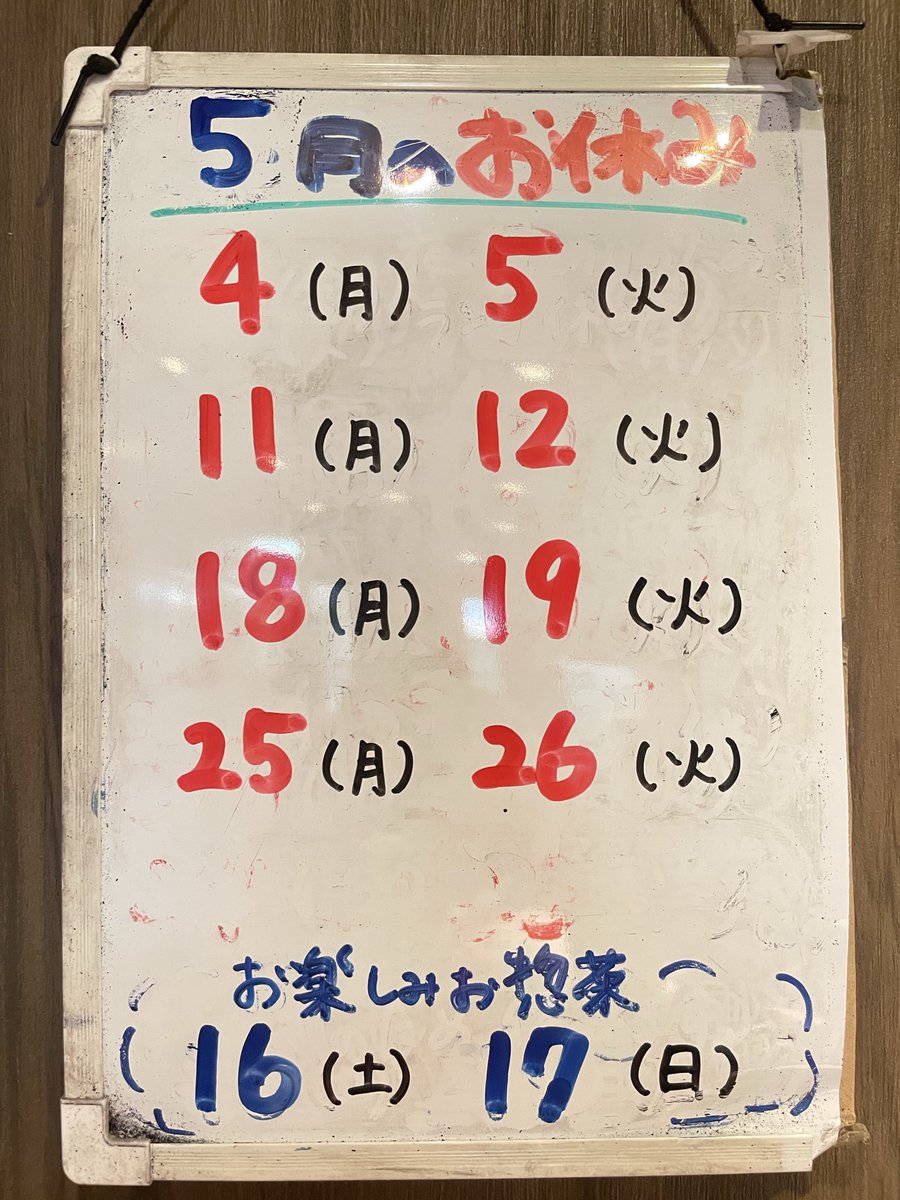 5月のお休み
4(月) 5(火)
11(月) 12(火)
18(月) 19(火)
25(月) 26(火)
お楽しみお惣菜
16(土) 17(日)